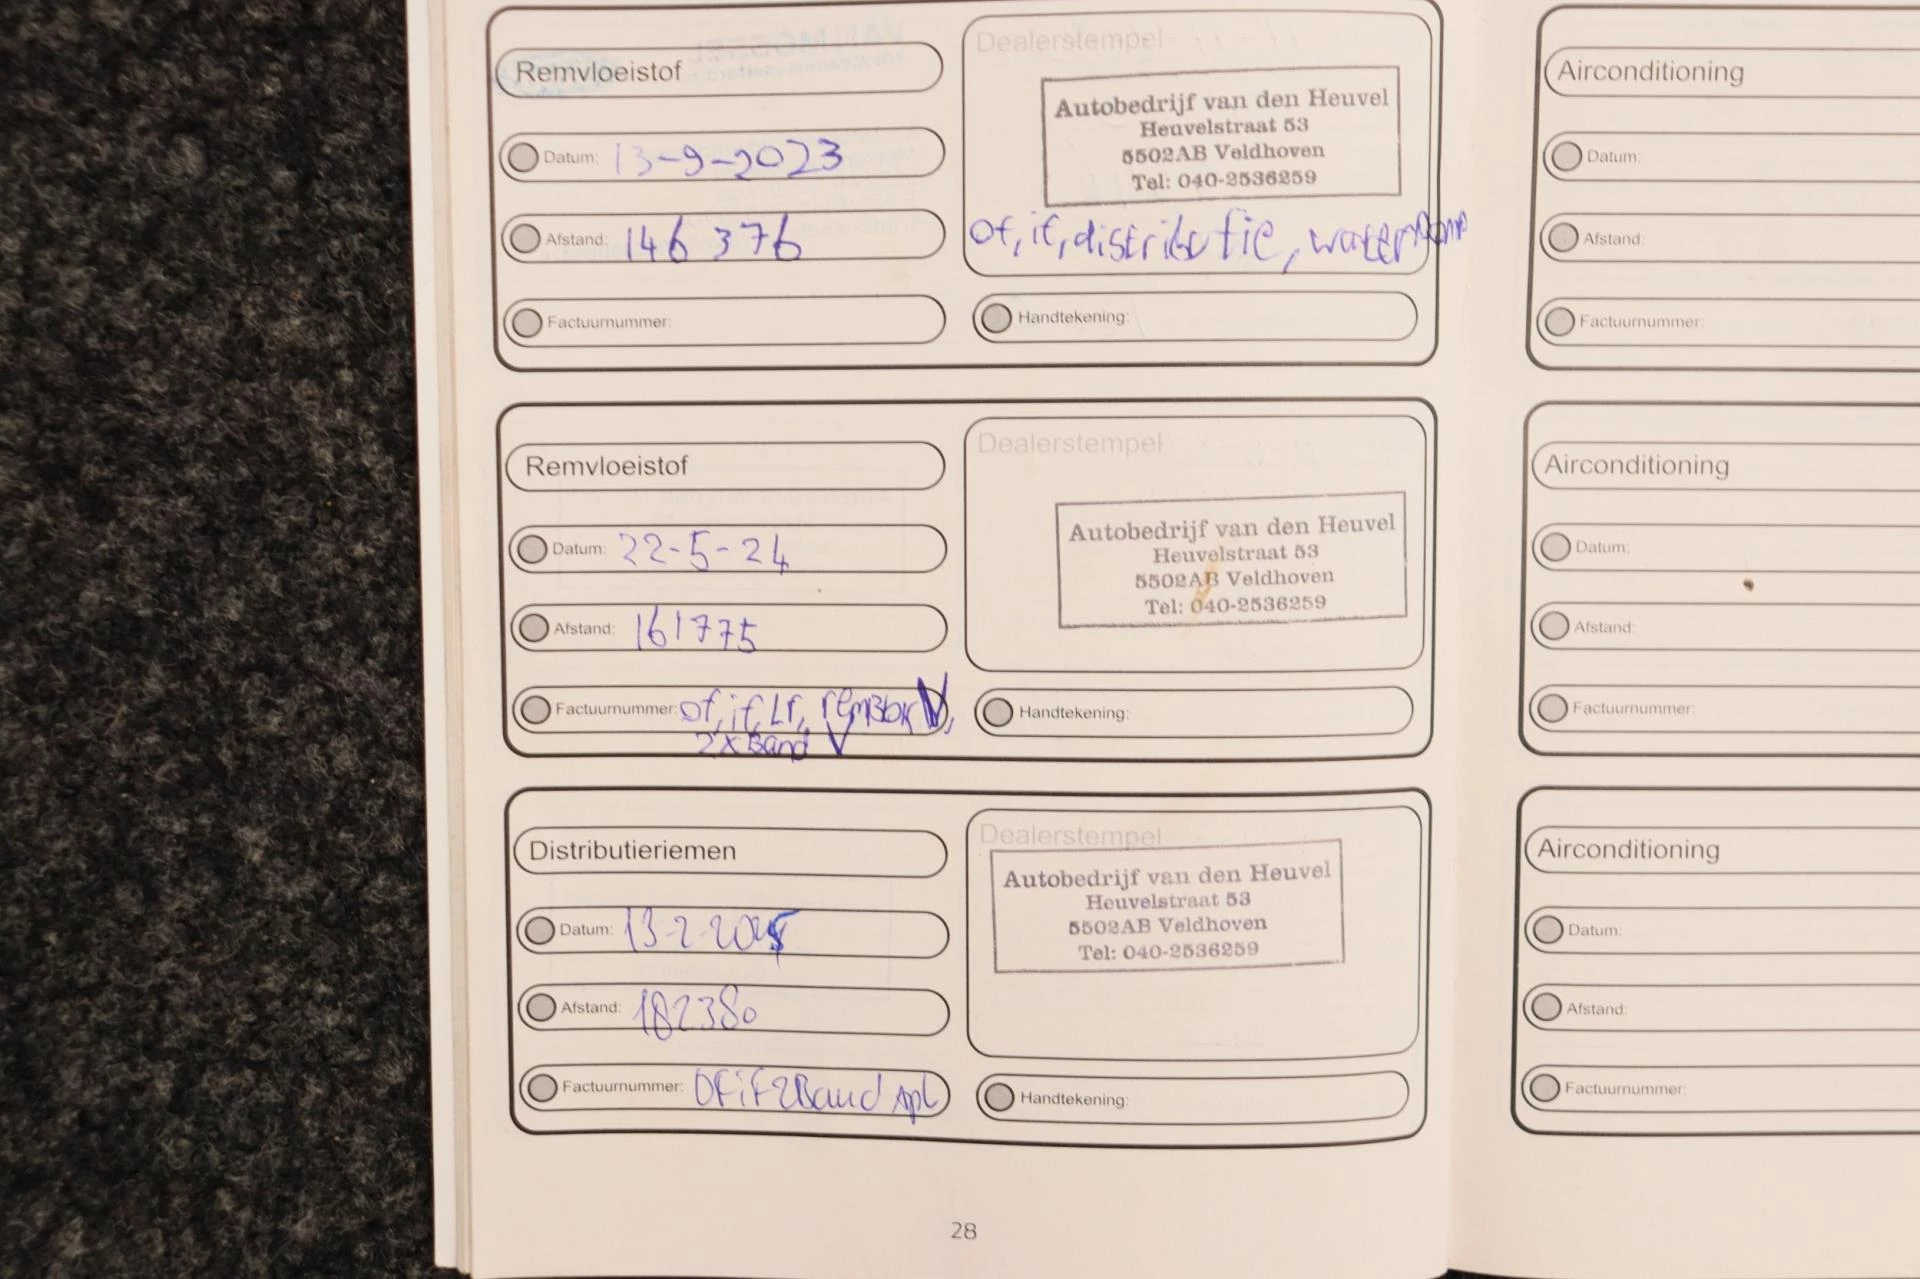 Remvloeistof
Datum: 13-9-2023
Afstand: 146 376
Factuurnummer:
Dealerstempel
Autobedrijf van den Heuvel
Heuvelstraat 53
5502AB Veldhoven
Tel: 040-2536259
of, if, distributie, waterpomp
Handtekening:
Remvloeistof
Datum: 22-5-24
Afstand: 161775
Factuurnummer: of, if, Lf, remblok V,
2x Band V
Dealerstempel
Autobedrijf van den Heuvel
Heuvelstraat 53
5502AB Veldhoven
Tel: 040-2536259
Handtekening:
Distributieriemen
Datum: 13-2-2025
Afstand: 182380
Factuurnummer: OFiF2Band Apk
Dealerstempel
Autobedrijf van den Heuvel
Heuvelstraat 53
5502AB Veldhoven
Tel: 040-2536259
Handtekening:
28
Airconditioning
Datum:
Afstand:
Factuurnummer:
Airconditioning
Datum:
Afstand:
Factuurnummer:
Airconditioning
Datum:
Afstand:
Factuurnummer: